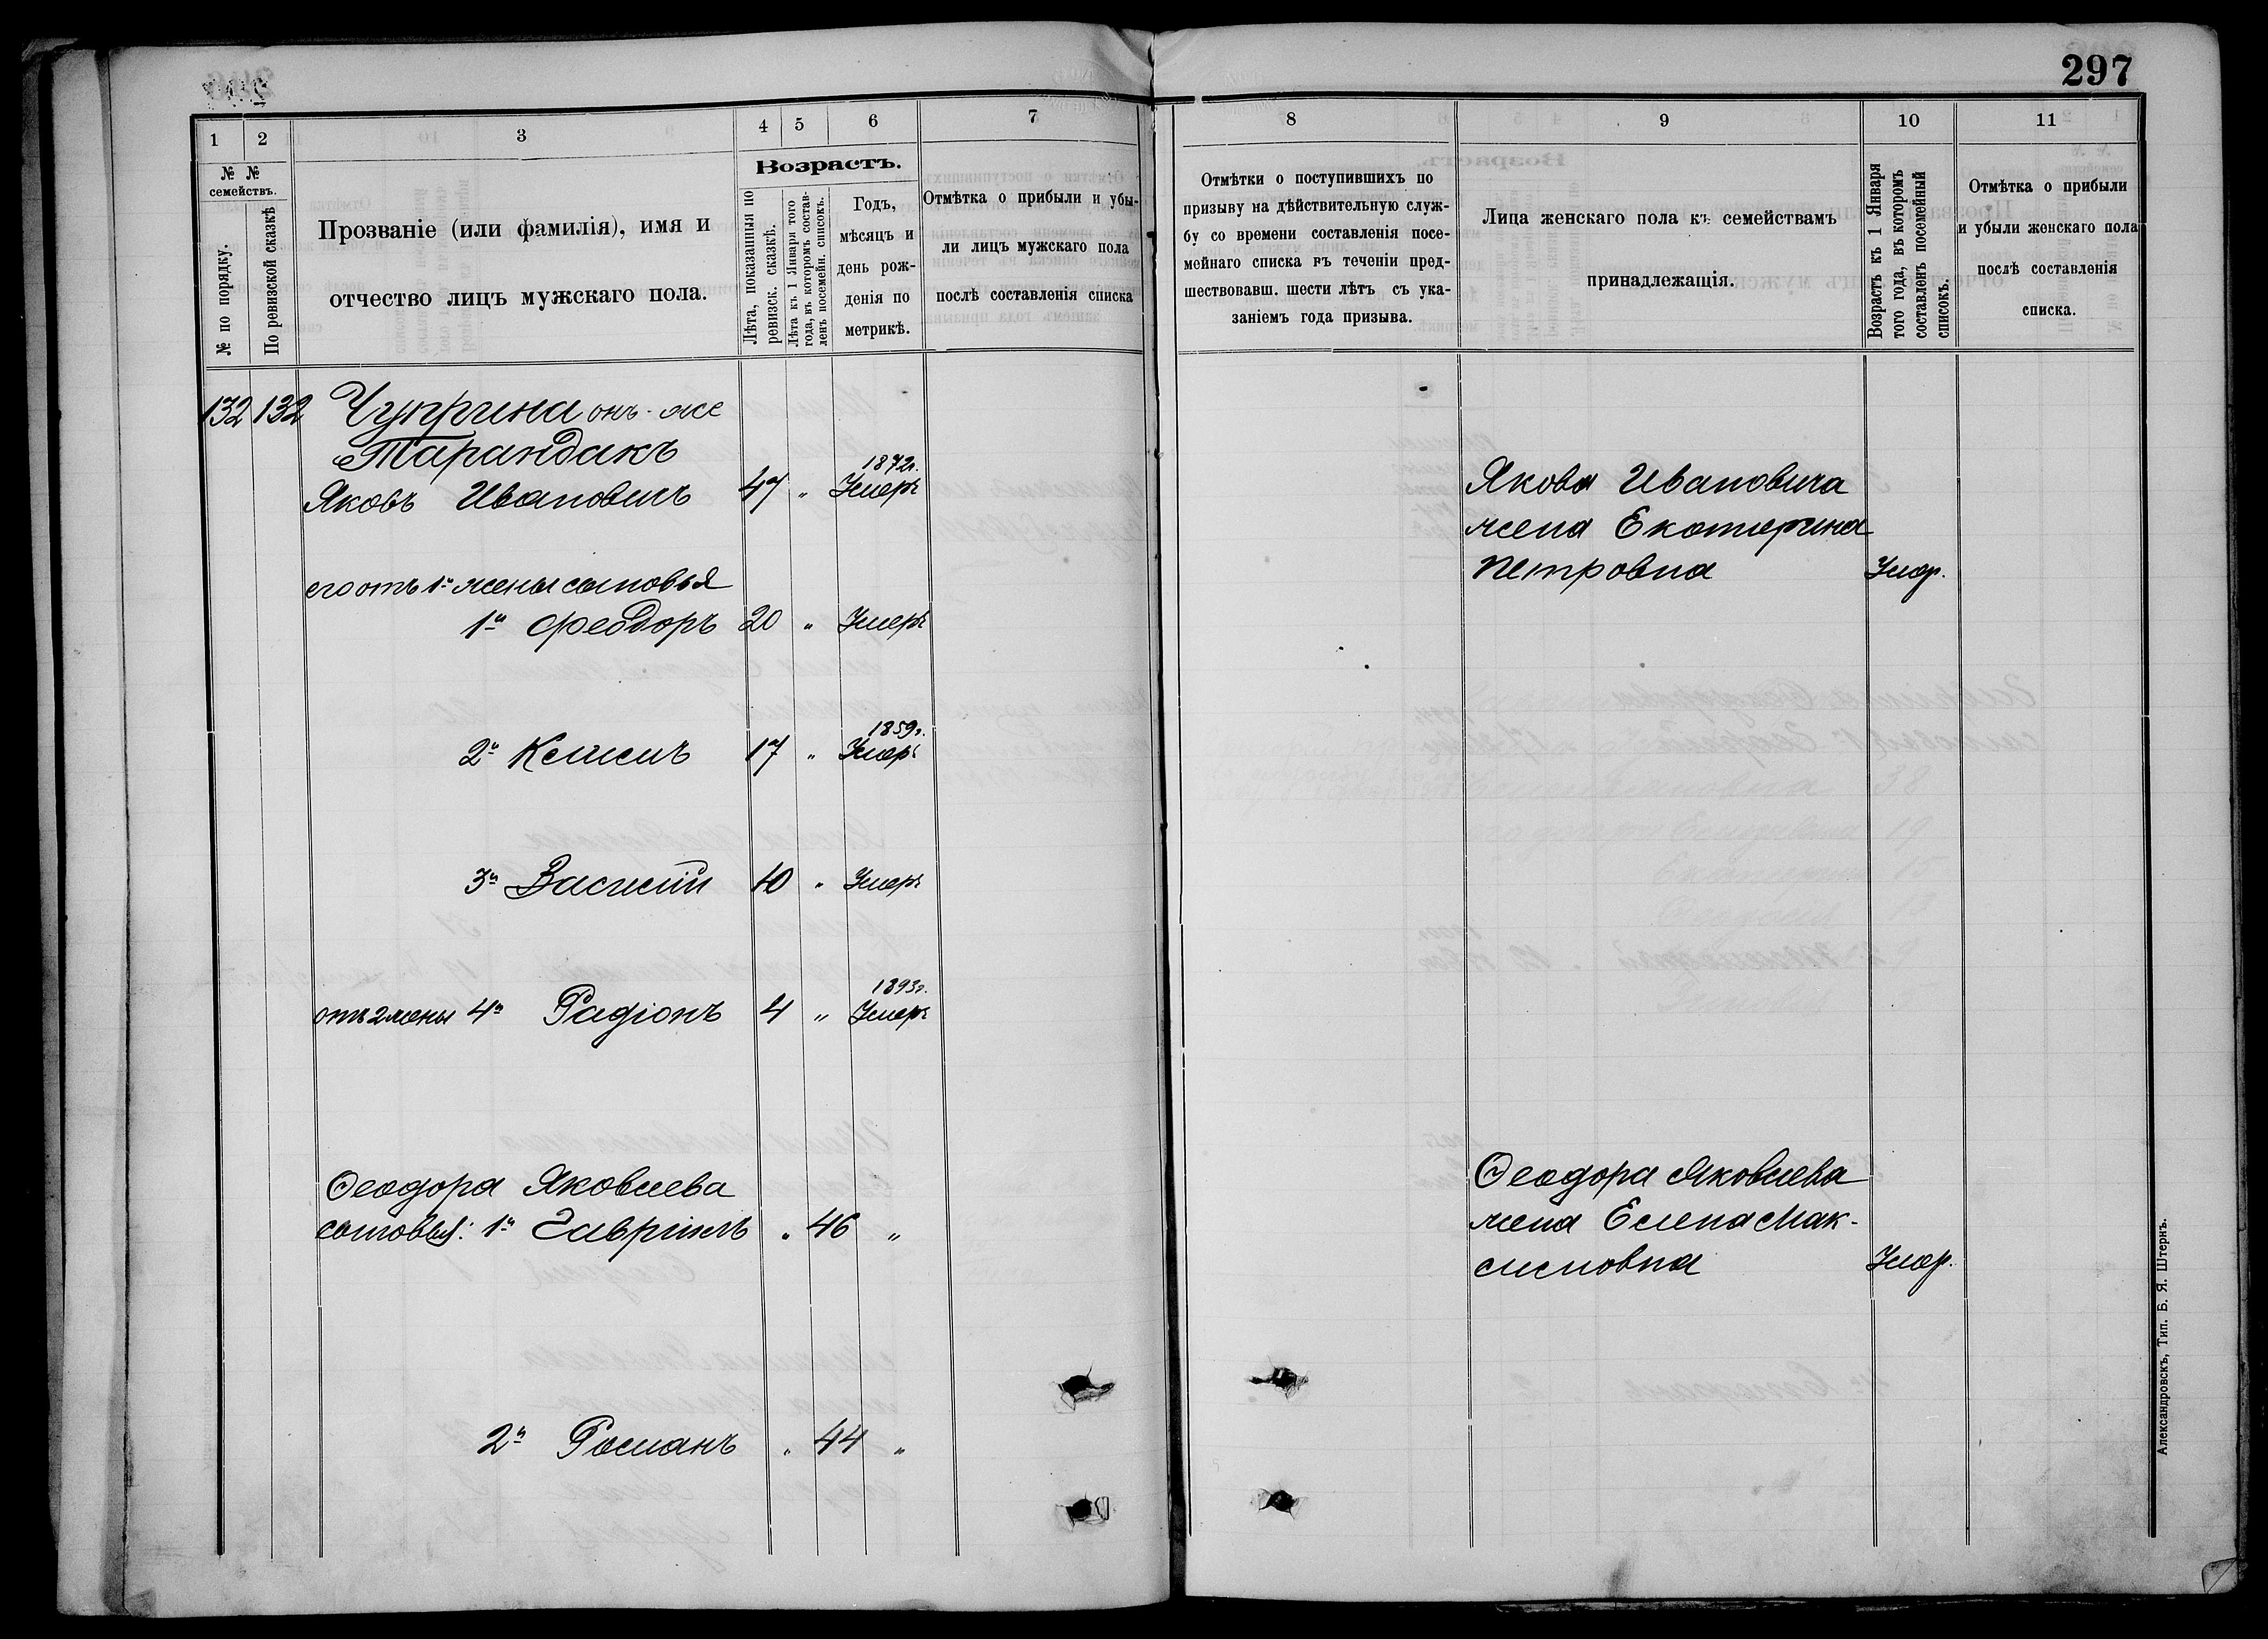 297
1 2 3 4 5 6 7
№ № семействъ.
№ по порядку.
По ревизской сказкѣ
Прозваніе (или фамилія), имя и
отчество лицъ мужскаго пола.
Возрастъ.
Лѣта, показанныя по
ревизск. сказкѣ.
Лѣта къ 1 Января того
года, въ которомъ состав-
ленъ посемейн. списокъ.
Годъ,
мѣсяцъ и
день рож-
денія по
метрикѣ.
Отмѣтка о прибыли и убы-
ли лицъ мужскаго пола
послѣ составленія списка
132 132 Чуприна онъ-же
Тарандакъ
1872г.
Яковъ Ивановичъ 47 „ Умеръ
его отъ 1й жены сыновья
1й Феодоръ 20 „ Умеръ
1859г.
2й Клименъ 17 „ Умеръ
3й Василій 10 „ Умеръ
1893г.
отъ 2 жены 4й Радіонъ 4 „ Умеръ
Ѳеодора Яковлева
сыновья: 1й Гавріилъ „ 46 „
2й Романъ „ 44 „
8 9 10 11
Отмѣтки о поступившихъ по
призыву на дѣйствительную служ-
бу со времени составленія посе-
мейнаго списка въ теченіи пред-
шествовавш. шести лѣтъ съ ука-
заніемъ года призыва.
Лица женскаго пола къ семействамъ
принадлежащія.
Возрастъ къ 1 Января
того года, въ которомъ
составленъ посемейный
списокъ.
Отмѣтка о прибыли
и убыли женскаго пола
послѣ составленія
списка.
Якова Ивановича
жена Екатерина
Петровна Умер.
Ѳеодора Яковлева
жена Елена Мак-
симовна Умер.
Александровскъ, Тип. Б. Я. Штернъ.